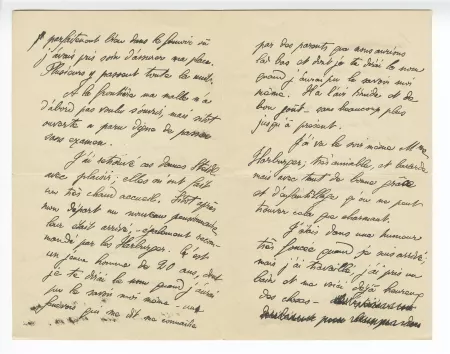 parfaitement bien dans le fumoir où
j'avais pris soin d'assurer ma place.
Plusieurs y passent toute la nuit.
A la frontière ma malle n'a
d'abord pas voulu s'ouvrir, mais sitôt
ouverte a paru digne de passer
sans examen.
J'ai retrouvé ces dames
avec plaisir; elles m'ont fait
un très chaud accueil. Sitôt après
mon départ un nouveau pensionnaire
leur était arrivé, également recom-
mandé par les Harburger. C'est
un jeune homme de 20 ans, dont
je te dirai le nom quand j'aurai
pu le savoir moi même - un
qui me dit me connaître
par des parents que nous aurions
là bas et dont je te dirai le nom
quand j'aurai pu le savoir moi
même. Il a l'air timide et de
bon goût - sans beaucoup plus
jusqu'à présent.
J'ai vu le soir même Mme
Harburger; très aimable, et bavarde
mais avec tant de bonne grâce
et d'enfantillage qu'on ne peut
trouver cela que charmant.
J'étais dans une humeur
très foncée quand je suis arrivé
mais j'ai travaillé, j'ai pris un
bain et me voici déjà heureux
des choses -